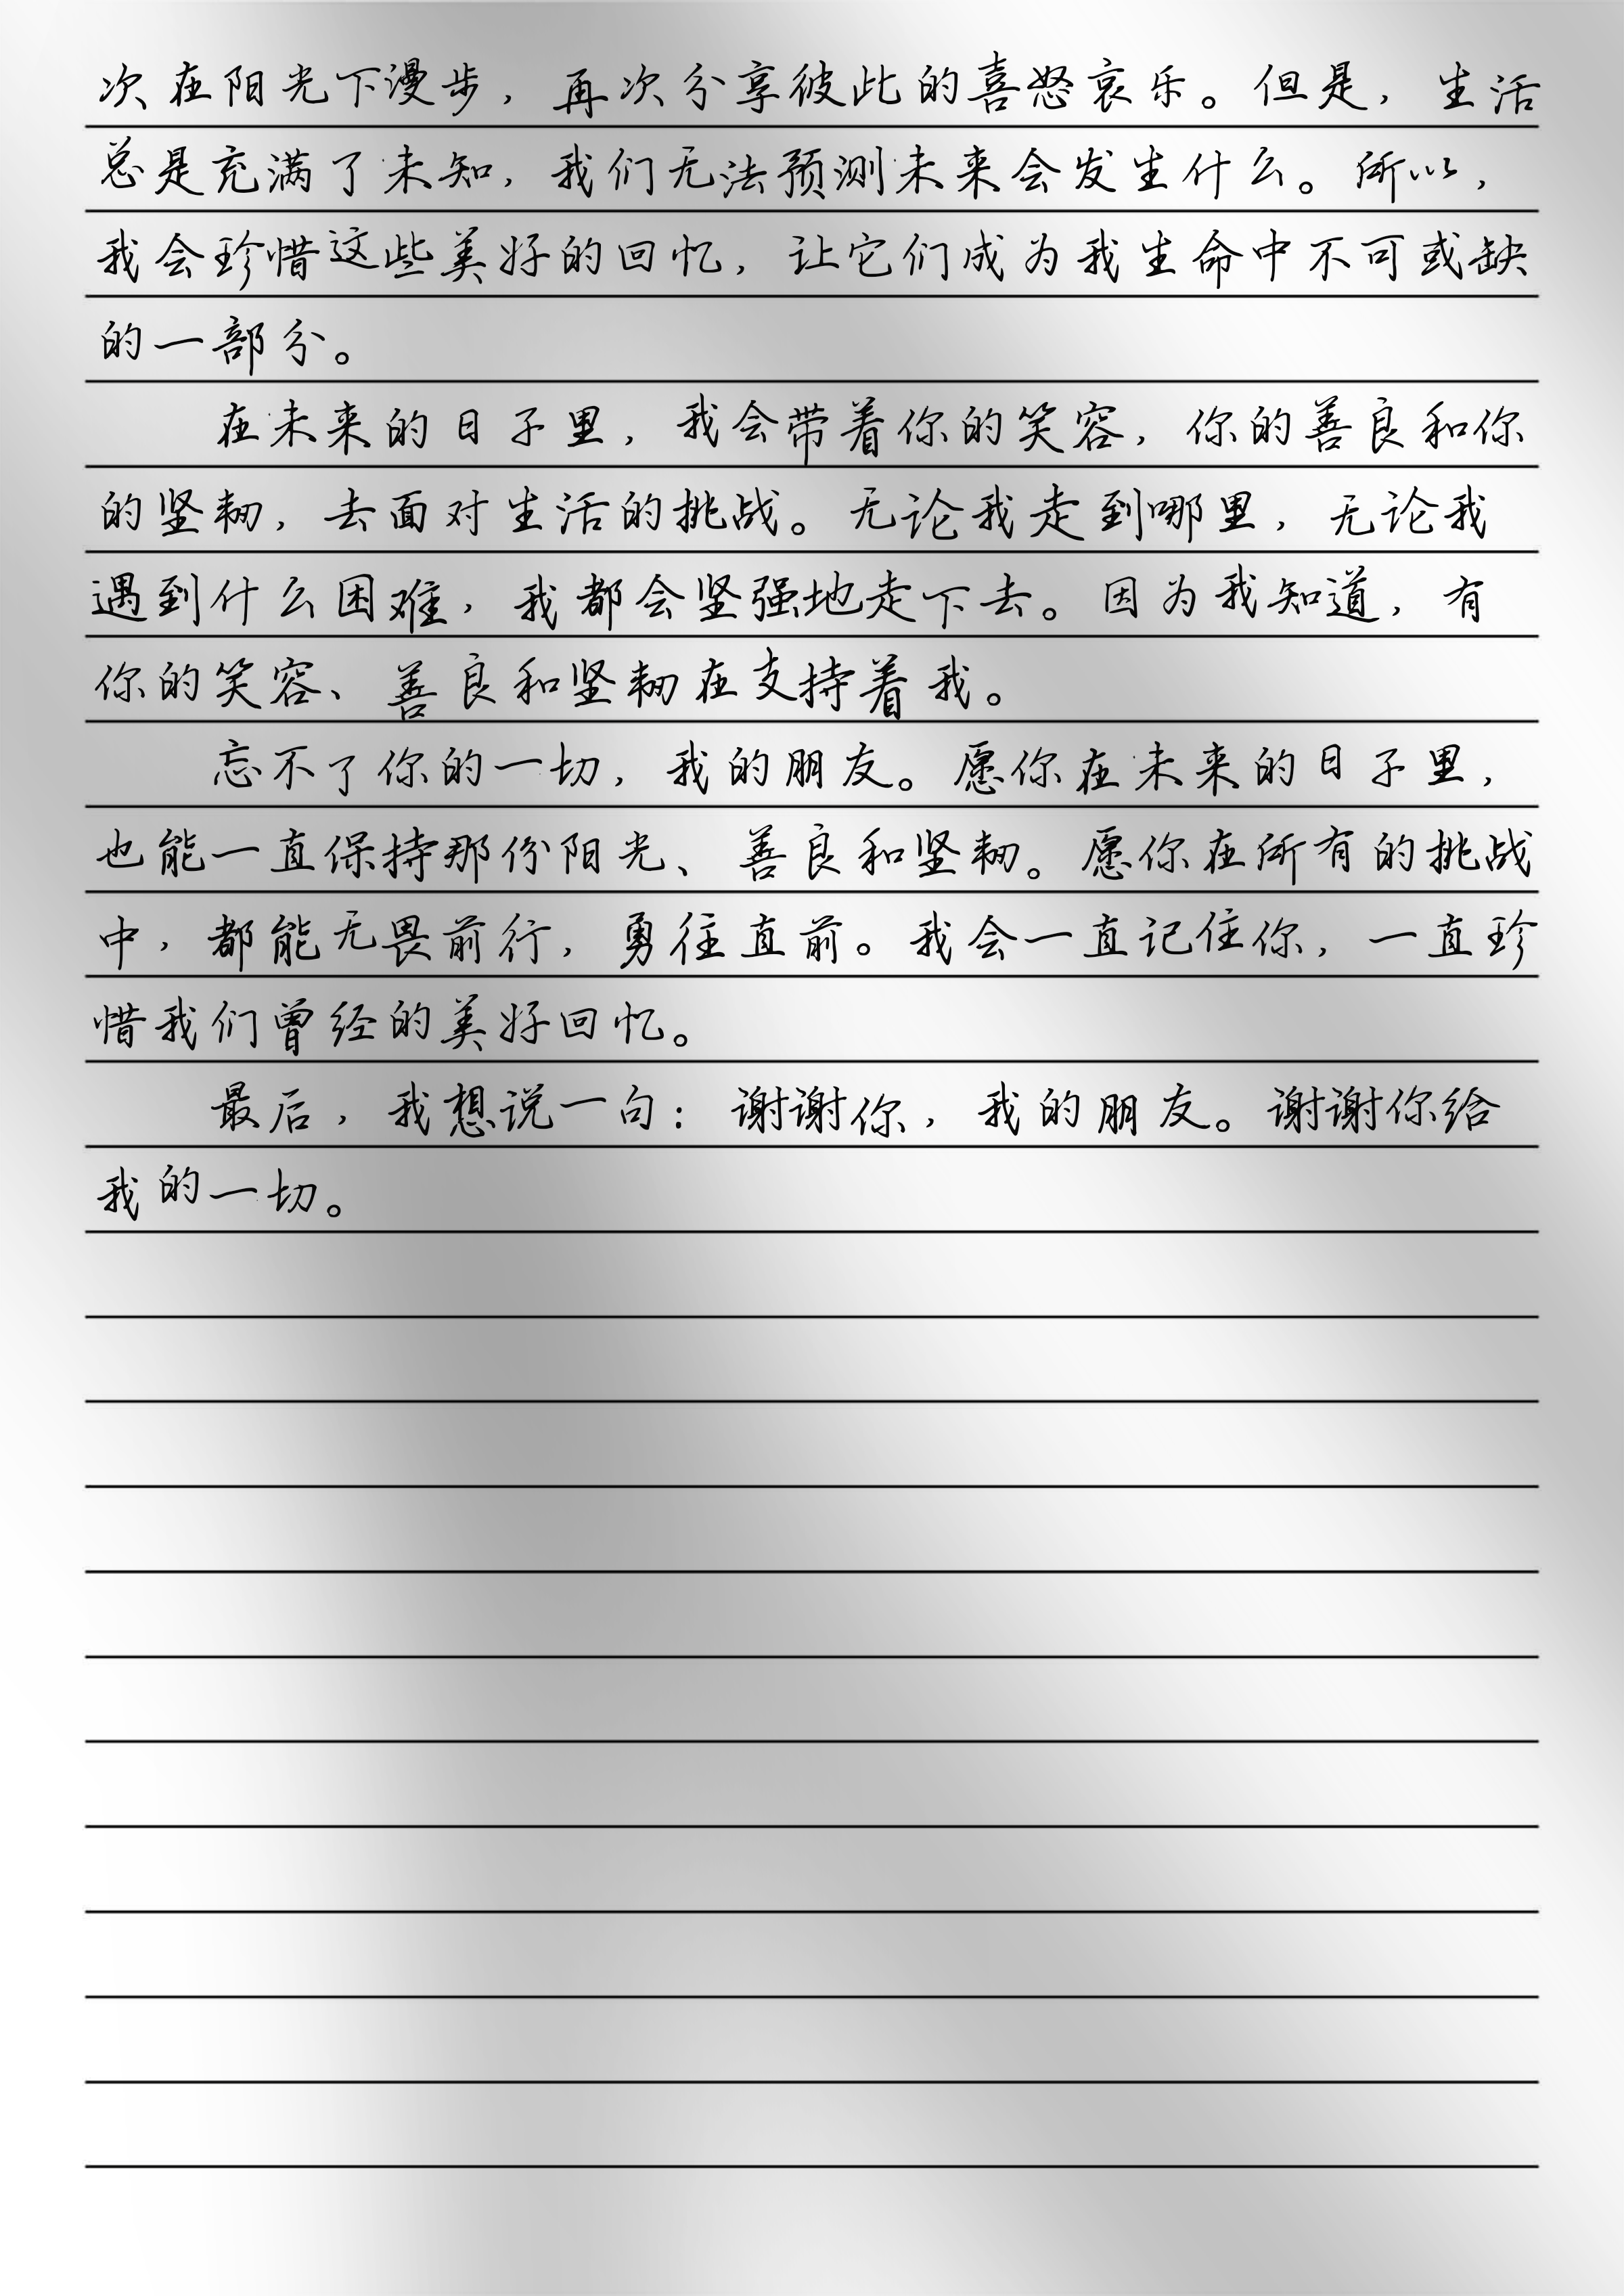 次在阳光下漫步，再次分享彼此的喜怒哀乐。但是，生活
总是充满了未知，我们无法预测未来会发生什么。所以，
我会珍惜这些美好的回忆，让它们成为我生命中不可或缺
的一部分。
在未来的日子里，我会带着你的笑容，你的善良和你
的坚韧，去面对生活的挑战。无论我走到哪里，无论我
遇到什么困难，我都会坚强地走下去。因为我知道，有
你的笑容、善良和坚韧在支持着我。
忘不了你的一切，我的朋友。愿你在未来的日子里，
也能一直保持那份阳光、善良和坚韧。愿你在所有的挑战
中，都能无畏前行，勇往直前。我会一直记住你，一直珍
惜我们曾经的美好回忆。
最后，我想说一句：谢谢你，我的朋友。谢谢你给
我的一切。